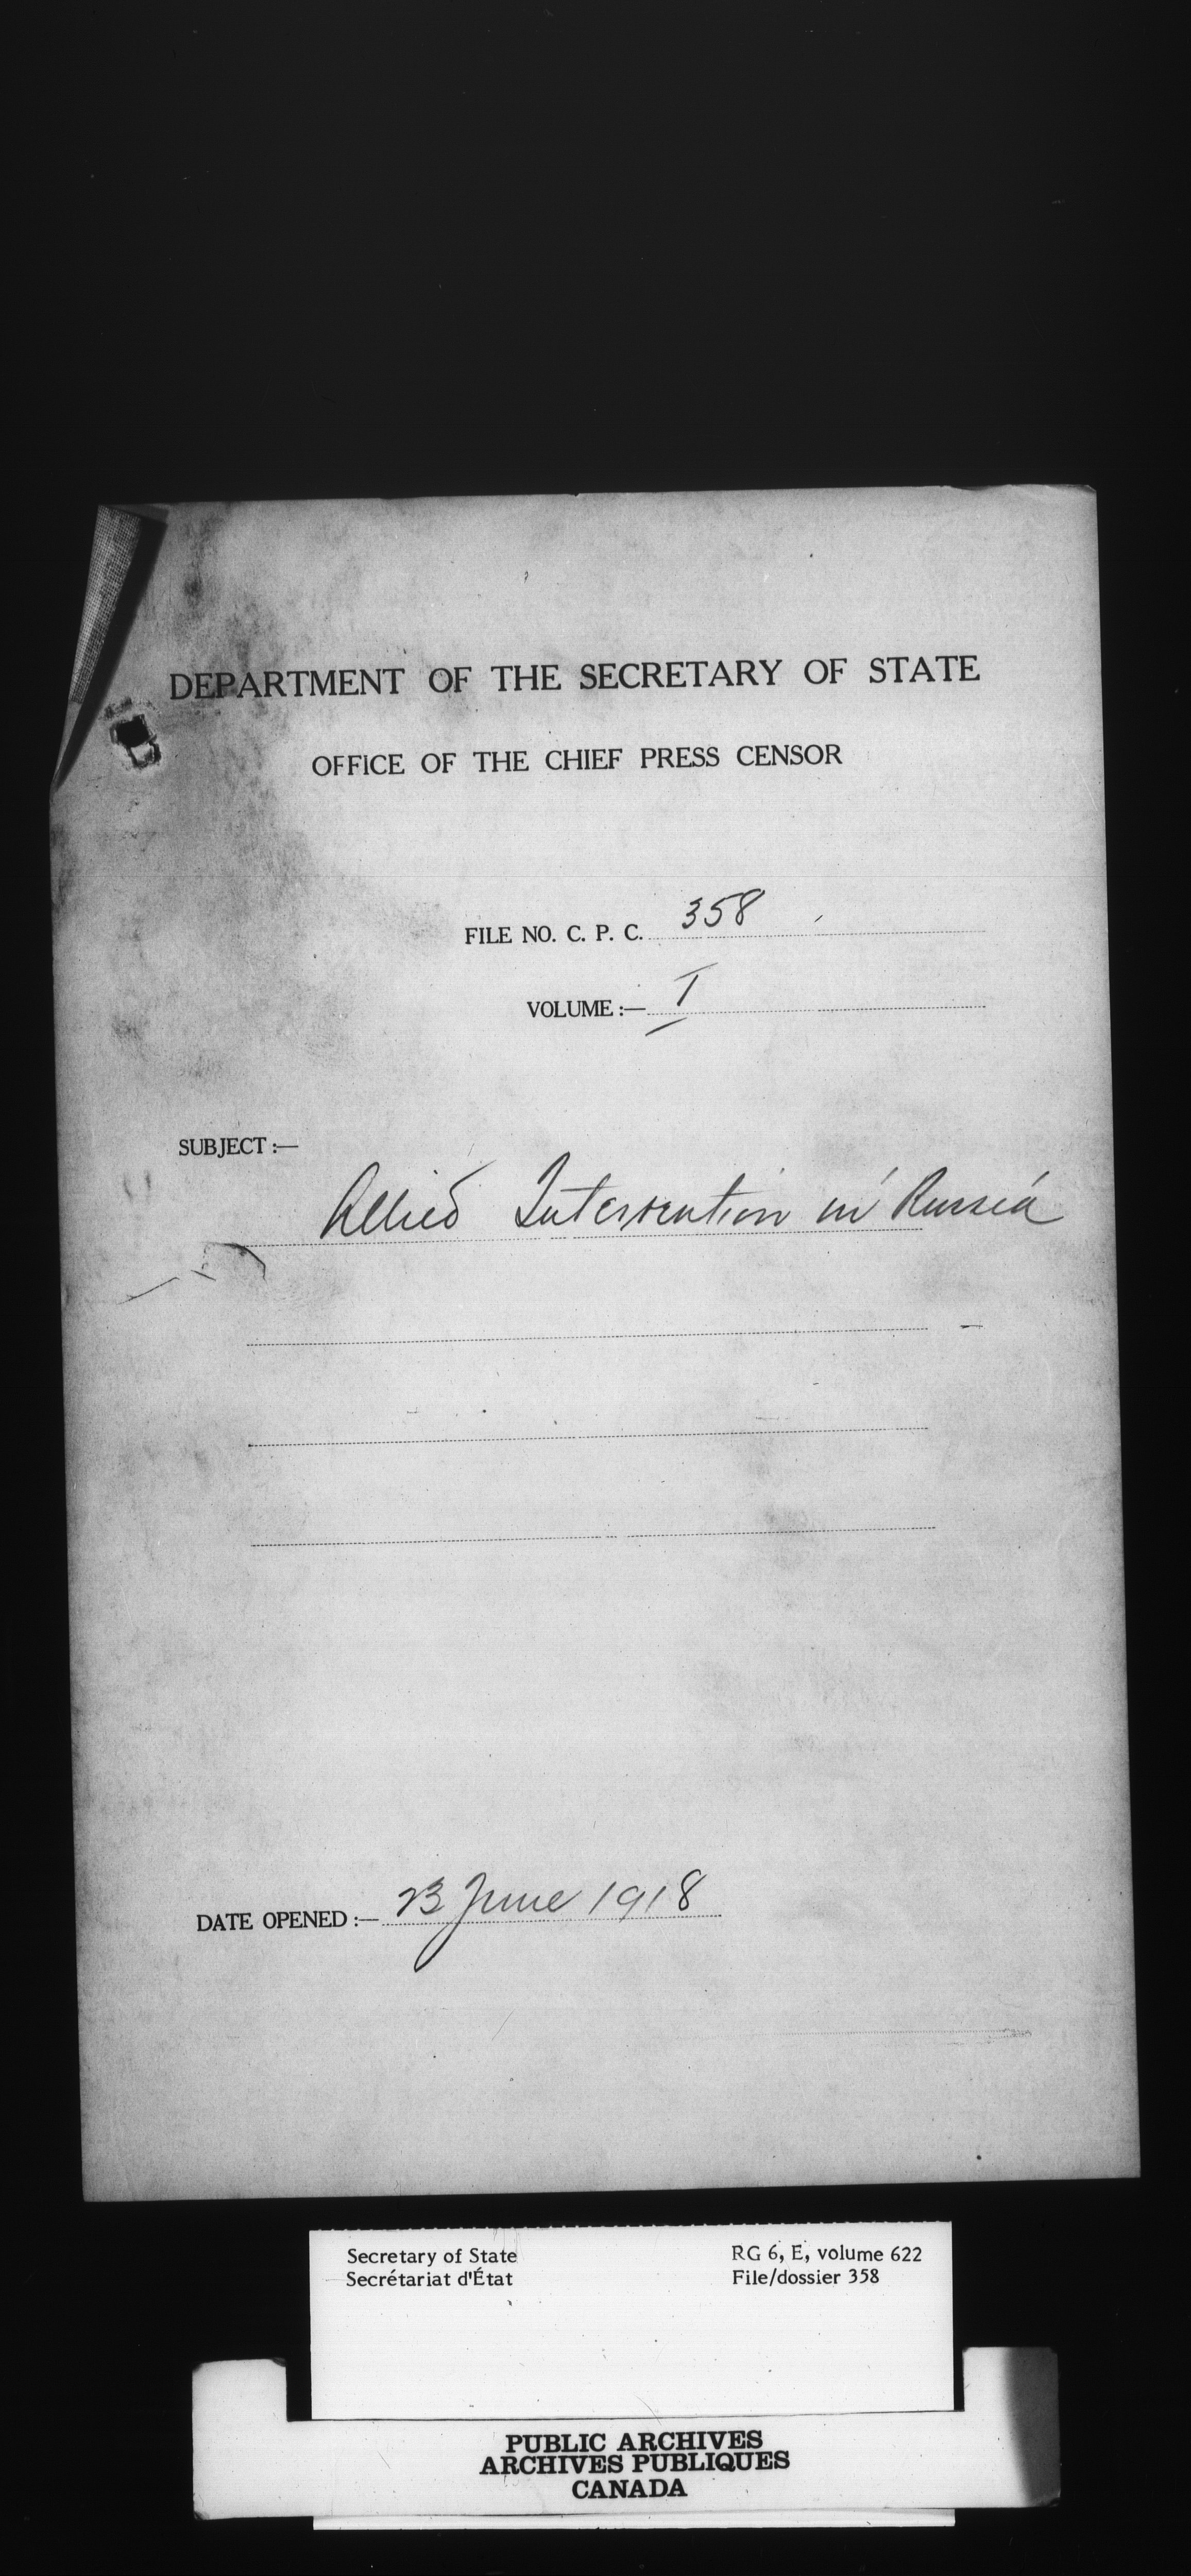 DEPARTMENT OF THE SECRETARY OF STATE
OFFICE OF THE CHIEF PRESS CENSOR
FILE NO. C. P. C. 358
VOLUME :— I
SUBJECT :—
Allied Intervention in Russia
DATE OPENED :— 23 June 1918
Secretary of State
Secrétariat d'État
RG 6, E, volume 622
File/dossier 358
PUBLIC ARCHIVES
ARCHIVES PUBLIQUES
CANADA